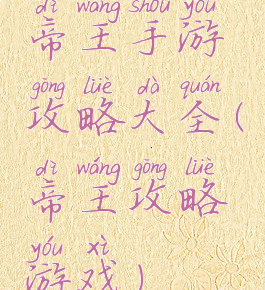 dì wáng shǒu yóu
帝王手游
gōng lüè dà quán
攻略大全(
dì wáng gōng lüè
帝王攻略
yóu xì
游戏)